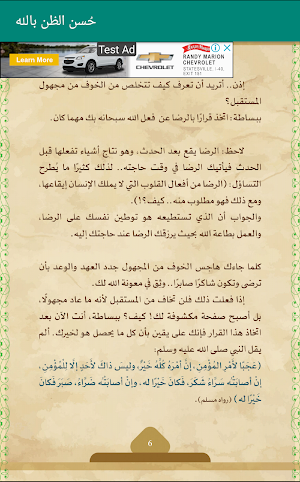 حُسن الظن بالله
Test Ad
Learn More
CHEVROLET
RANDY MARION
CHEVROLET
STATESVILLE, I-40,
EXIT 151
إذن.. أتريد أن تعرف كيف تتخلص من الخوف من مجهول
المستقبل؟
ببساطة: اتخذ قرارًا بالرضا عن فعل الله سبحانه بك مهما كان.
لاحظ: الرضا يقع بعد الحدث، وهو نتاج أشياء تفعلها قبل
الحدث فيأتيك الرضا في وقت حاجته.. لذلك كثيرًا ما يُطرح
التساؤل: (الرضا من أفعال القلوب التي لا يملك الإنسان إيقاعها،
ومع ذلك فهو مطلوب منه.. كيف؟!).
والجواب أن الذي تستطيعه هو توطين نفسك على الرضا،
والعمل بطاعة الله بحيث يرزقك الرضا عند حاجتك إليه.
كلما جاءك هاجس الخوف من المجهول جدد العهد والوعد بأن
ترضى وتكون شاكرًا صابرًا.. وثِق في معونة الله لك.
إذا فعلت ذلك فلن تخاف من المستقبل لأنه ما عاد مجهولًا،
بل أصبح صفحة مكشوفة لك! كيف؟ ببساطة، أنت الآن بعد
اتخاذ هذا القرار فإنك على يقين بأن كل ما يحصل هو لخيرك. ألم
يقل النبي صلى الله عليه وسلم:
(عَجَبًا لأَمْرِ المُؤْمِنِ، إنَّ أمْرَهُ كُلَّهُ خَيْرٌ، وليسَ ذاكَ لأَحَدٍ إلَّا لِلْمُؤْمِنِ،
إنْ أصابَتْهُ سَرَّاءُ شَكَرَ، فَكانَ خَيْرًا له، وإنْ أصابَتْهُ ضَرَّاءُ، صَبَرَ فَكانَ
خَيْرًا له) (رواه مسلم).
6